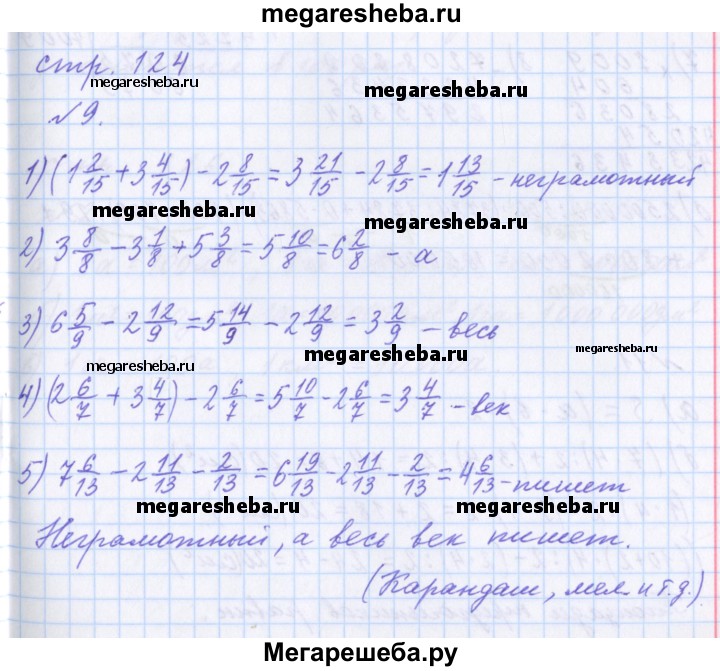 megaresheba.ru
стр. 124
megaresheba.ru
megaresheba.ru
№9.
1) (1 2/15 + 3 4/15) - 2 8/15 = 3 21/15 - 2 8/15 = 1 13/15 - неграмотный
megaresheba.ru
megaresheba.ru
2) 3 8/8 - 3 1/8 + 5 3/8 = 5 10/8 = 6 2/8 - а
3) 6 5/9 - 2 12/9 = 5 14/9 - 2 12/9 = 3 2/9 - весь
megaresheba.ru
megaresheba.ru
megaresheba.ru
4) (2 6/7 + 3 4/7) - 2 6/7 = 5 10/7 - 2 6/7 = 3 4/7 - век
5) 7 6/13 - 2 11/13 - 2/13 = 6 19/13 - 2 11/13 - 2/13 = 4 6/13 - пишет
megaresheba.ru
megaresheba.ru
Неграмотный, а весь век пишет.
(Карандаш, мел и т.д.)
Мегарешеба.ру